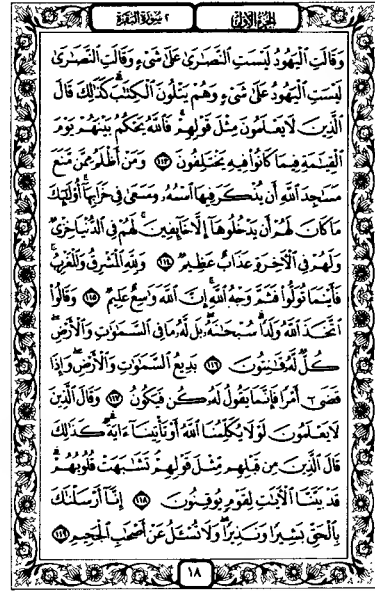 الجزء الأول
٢ سورة البقرة
وَقَالَتِ الْيَهُودُ لَيْسَتِ النَّصَـٰرَىٰ عَلَىٰ شَىْءٍ وَقَالَتِ النَّصَـٰرَىٰ
لَيْسَتِ الْيَهُودُ عَلَىٰ شَىْءٍ وَهُمْ يَتْلُونَ الْكِتَـٰبَ ۗ كَذَٰلِكَ قَالَ
الَّذِينَ لَا يَعْلَمُونَ مِثْلَ قَوْلِهِمْ ۚ فَاللَّهُ يَحْكُمُ بَيْنَهُمْ يَوْمَ
الْقِيَـٰمَةِ فِيمَا كَانُوا فِيهِ يَخْتَلِفُونَ ١١٣ وَمَنْ أَظْلَمُ مِمَّن مَّنَعَ
مَسَـٰجِدَ اللَّهِ أَن يُذْكَرَ فِيهَا اسْمُهُ وَسَعَىٰ فِى خَرَابِهَا ۚ أُولَـٰئِكَ
مَا كَانَ لَهُمْ أَن يَدْخُلُوهَا إِلَّا خَائِفِينَ ۚ لَهُمْ فِى الدُّنْيَا خِزْىٌ
وَلَهُمْ فِى الْآخِرَةِ عَذَابٌ عَظِيمٌ ١١٤ وَلِلَّهِ الْمَشْرِقُ وَالْمَغْرِبُ ۚ
فَأَيْنَمَا تُوَلُّوا فَثَمَّ وَجْهُ اللَّهِ ۚ إِنَّ اللَّهَ وَٰسِعٌ عَلِيمٌ ١١٥ وَقَالُوا
اتَّخَذَ اللَّهُ وَلَدًا ۗ سُبْحَـٰنَهُ ۖ بَل لَّهُ مَا فِى السَّمَـٰوَٰتِ وَالْأَرْضِ ۖ
كُلٌّ لَّهُ قَـٰنِتُونَ ١١٦ بَدِيعُ السَّمَـٰوَٰتِ وَالْأَرْضِ ۖ وَإِذَا
قَضَىٰ أَمْرًا فَإِنَّمَا يَقُولُ لَهُ كُن فَيَكُونُ ١١٧ وَقَالَ الَّذِينَ
لَا يَعْلَمُونَ لَوْلَا يُكَلِّمُنَا اللَّهُ أَوْ تَأْتِينَا ءَايَةٌ ۗ كَذَٰلِكَ
قَالَ الَّذِينَ مِن قَبْلِهِم مِّثْلَ قَوْلِهِمْ ۘ تَشَـٰبَهَتْ قُلُوبُهُمْ ۗ
قَدْ بَيَّنَّا الْآيَـٰتِ لِقَوْمٍ يُوقِنُونَ ١١٨ إِنَّا أَرْسَلْنَـٰكَ
بِالْحَقِّ بَشِيرًا وَنَذِيرًا ۖ وَلَا تُسْـَٔلُ عَنْ أَصْحَـٰبِ الْجَحِيمِ ١١٩
١٨